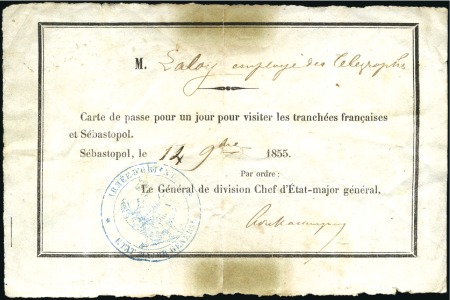 M. Laloy employé des Télégraphes
Carte de passe pour un jour pour visiter les tranchées françaises
et Sébastopol.
Sébastopol, le 14 9bre 1855.
Par ordre :
Le Général de division Chef d'État-major général,
ARMÉE D'ORIENT
ETAT MAJOR GENERAL